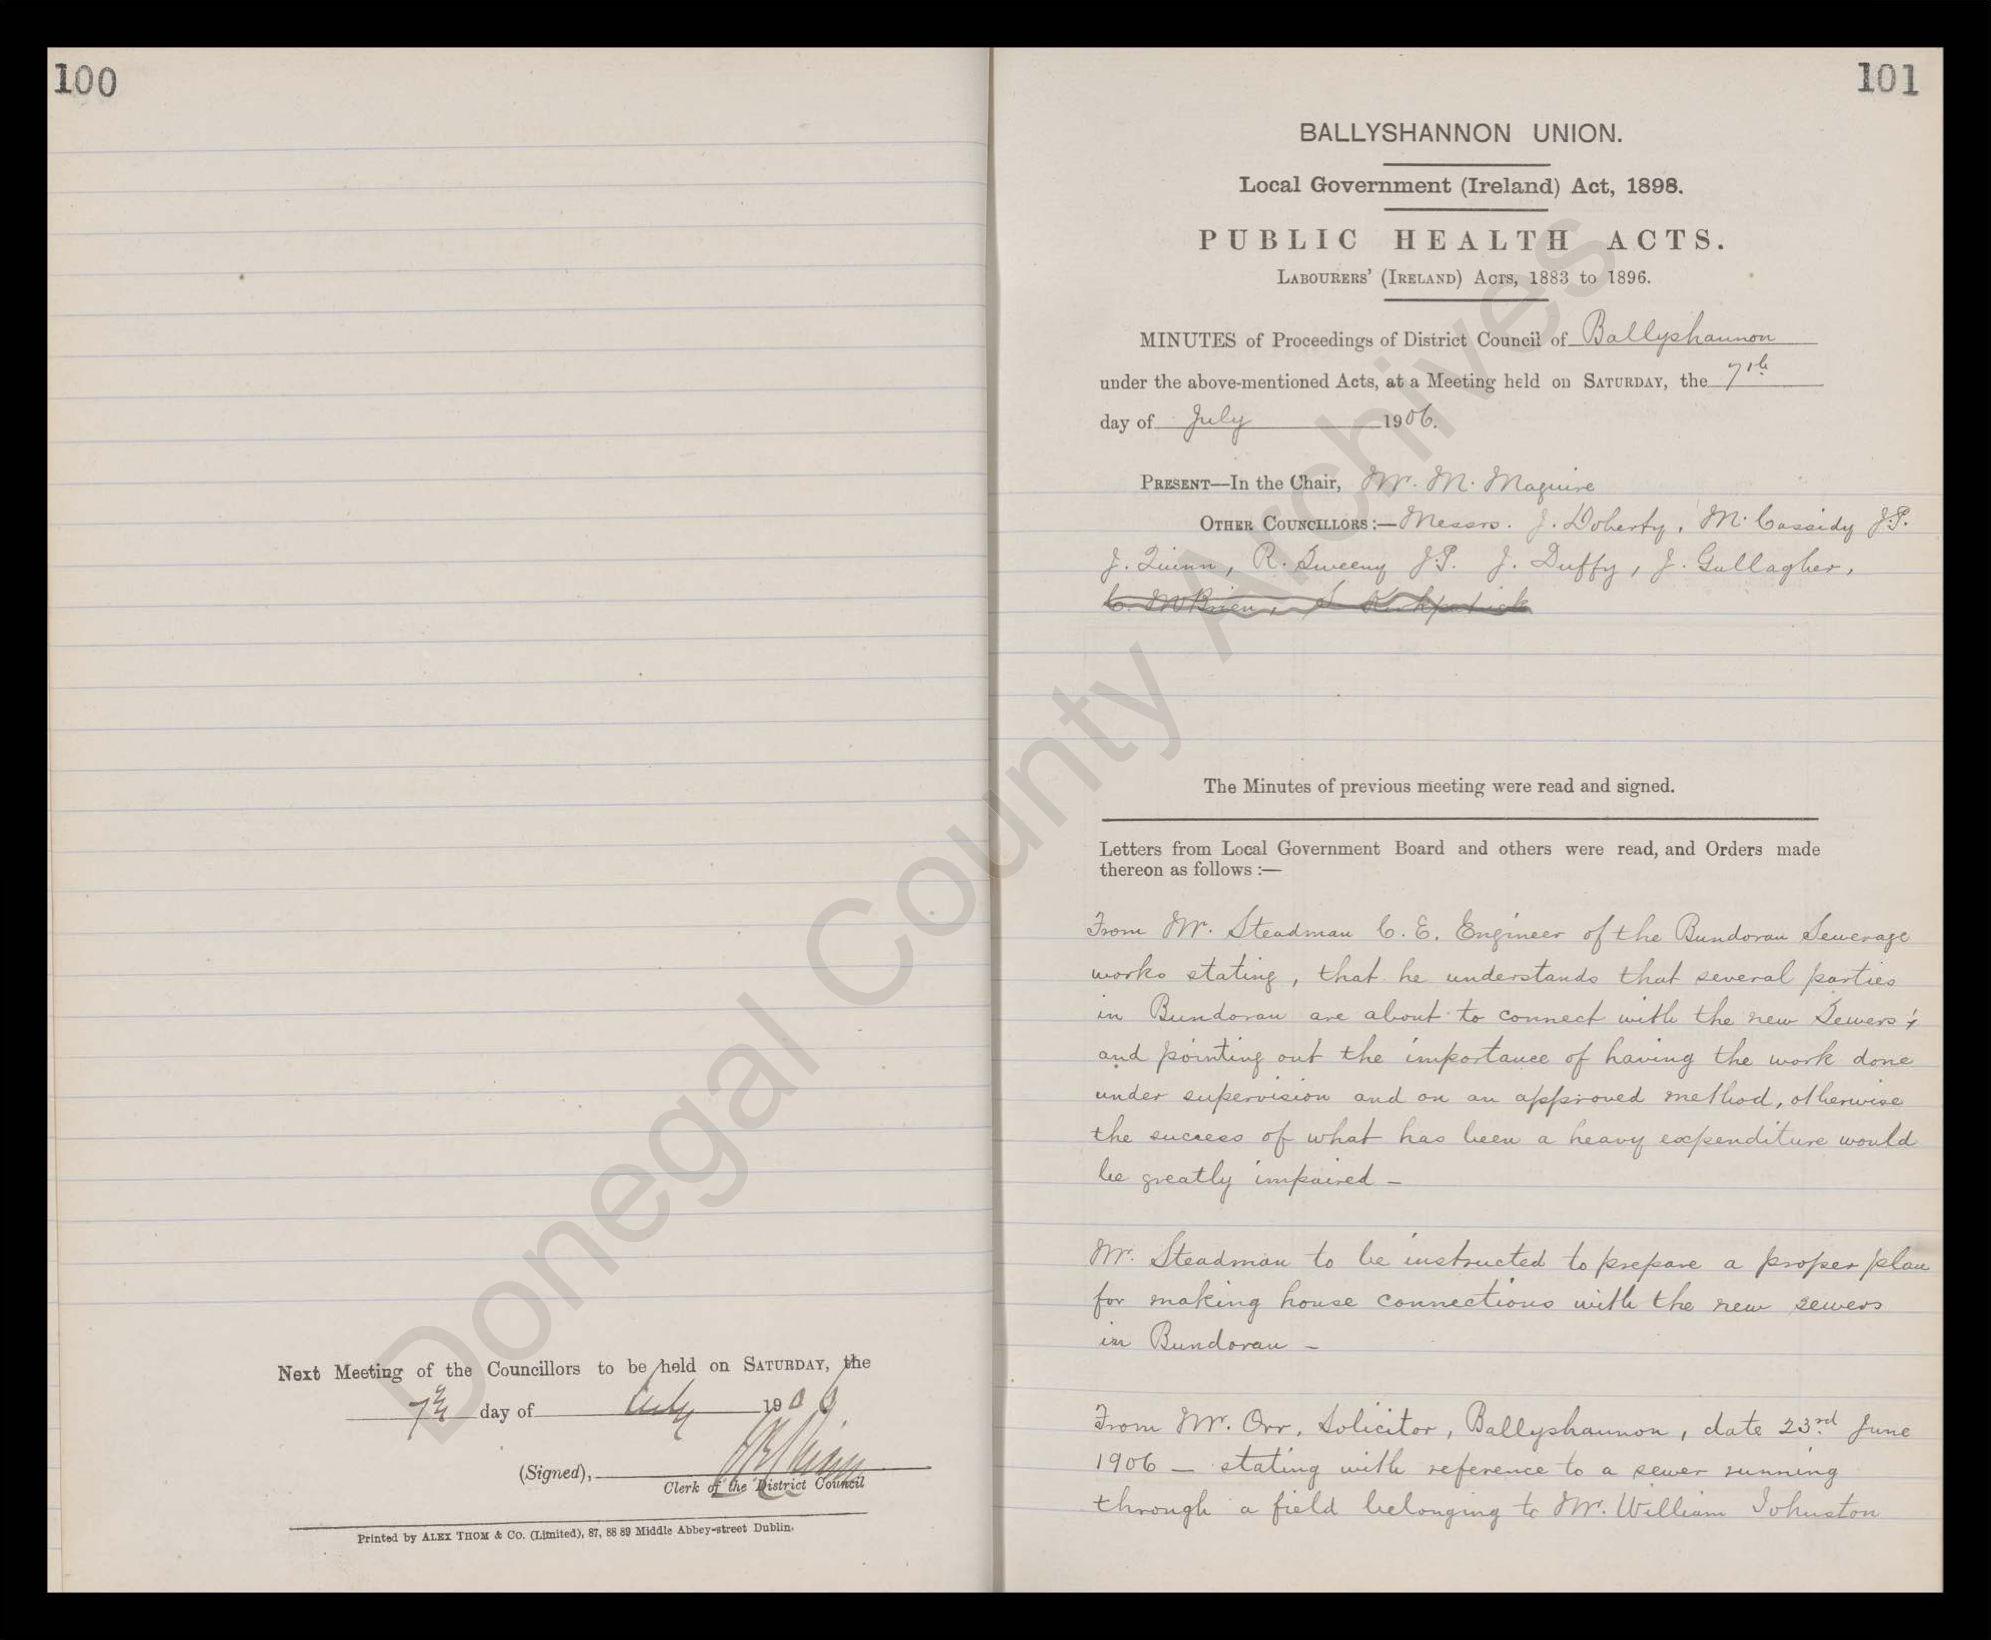 100
Next Meeting of the Councillors to be held on SATURDAY, the
7th day of July 1906
(Signed),
Clerk of the District Council
Printed by ALEX THOM & CO. (Limited), 87, 88 89 Middle Abbey-street Dublin.
101
BALLYSHANNON UNION.
Local Government (Ireland) Act, 1898.
PUBLIC HEALTH ACTS.
LABOURERS' (IRELAND) ACTS, 1883 to 1896.
MINUTES of Proceedings of District Council of Ballyshannon
under the above-mentioned Acts, at a Meeting held on SATURDAY, the 7th
day of July 1906.
PRESENT—In the Chair, Mr. M. Maguire
OTHER COUNCILLORS:—Messrs. J. Doherty, M. Cassidy J.P.
J. Quinn, R. Sweeny J.P. J. Duffy, J. Gallagher,
C. McBrien, S. Kirkpatrick
The Minutes of previous meeting were read and signed.
Letters from Local Government Board and others were read, and Orders made
thereon as follows :—
From Mr. Steadman C. E. Engineer of the Bundoran Sewerage
works stating, that he understands that several parties
in Bundoran are about to connect with the new Sewers;
and pointing out the importance of having the work done
under supervision and on an approved method, otherwise
the success of what has been a heavy expenditure would
be greatly impaired -
Mr. Steadman to be instructed to prepare a proper plan
for making house connections with the new sewers
in Bundoran -
From Mr. Orr, Solicitor, Ballyshannon, date 23rd June
1906 - stating with reference to a sewer running
through a field belonging to Mr. William Johnston
Donegal County Archives